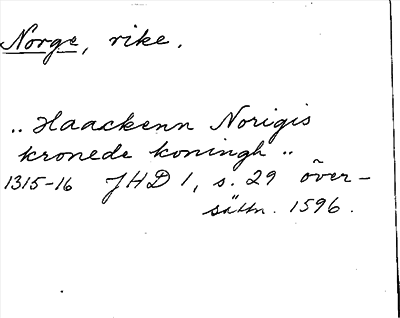 Norge, rike.
„ Haackenn Norigis
kronede koningh „
1315-16 JHD 1, s. 29 över-
sättn. 1596.